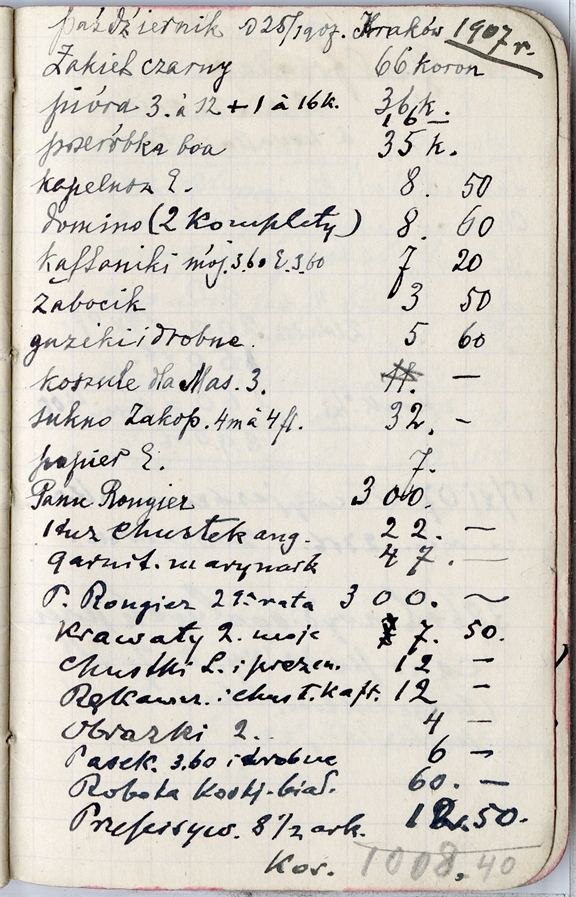 październik D 25/1907. Kraków 1907 r.
Żakiet czarny 66 koron
pióra 3. à 12 + 1 à 16 k. 36 k.
16 —
przeróbka boa 35 k.
kapelusz E. 8. 50
domino (2 komplety) 8. 60
kaftaniki mój. 3.60 E. 3.60 7 20
żabocik 3 50
guziki i drobne. 5 60
koszule dla Mas. 3. —
sukno Zakop. 4 m à 4 fl. 32. -
papier E. 7.
Panu Rongier 300.
tuz chustek ang. 22. —
garnit. marynark 47. —
P. Rongier 2ga rata 300. —
Krawaty 2. moje 7. 50.
Chustki L. i prezen. 12 —
Rękawicz. i chust. kaft. 12 -
Obrazki 2.. 4 —
Pasek. 3.60 i drobne 6 —
Robota Kostj. biał. 60. —
Przepisyw. 8 1/2 ark. 12.50.
Kor. 1008,40